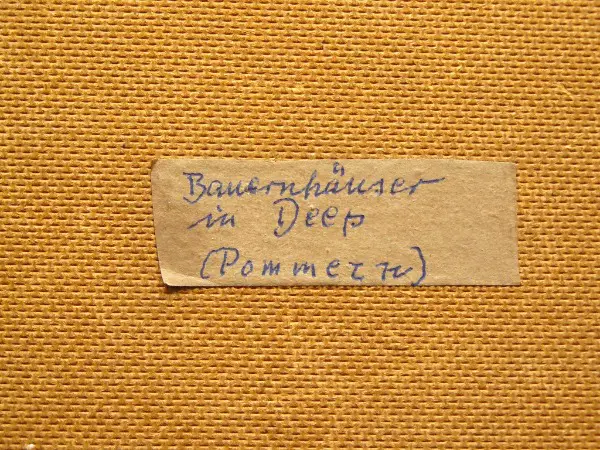 Bauernhäuser
in Deep
(Pommern)